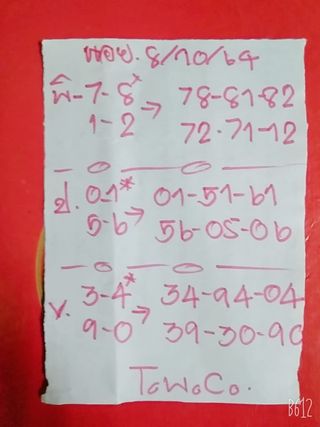 หอย. 8/10/64
พิ-7-8* → 78-81-82
1-2 72-71-12
ป. 0-1* → 01-51-61
5-6 56-05-06
V. 3-4* → 34-94-04
9-0 39-30-90
ToWoCo.
B612